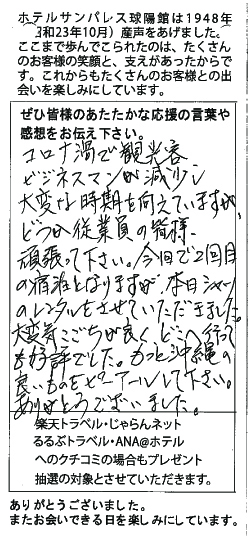 ホテルサンパレス球陽館は1948年
(昭和23年10月)産声をあげました。
ここまで歩んでこられたのは、たくさん
のお客様の笑顔と、支えがあったからで
す。これからもたくさんのお客様との出
会いを楽しみにしています。
ぜひ皆様のあたたかな応援の言葉や
感想をお伝え下さい。
コロナ渦で観光客
ビジネスマンが減少し
大変な時期を向えていますが、
どうか従業員の皆様、
頑張って下さい。今回で2回目
の宿泊となりますが、本日シャツ
のレンタルをさせていただきました。
大変着ごこちが良く、どこへ行って
も好評でした。もっと沖縄の
良いものをピーアールして下さい。
ありがとうございました。
楽天トラベル・じゃらんネット
るるぶトラベル・ANA@ホテル
へのクチコミの場合もプレゼント
抽選の対象とさせていただきます。
ありがとうございました。
またお会いできる日を楽しみにしています。